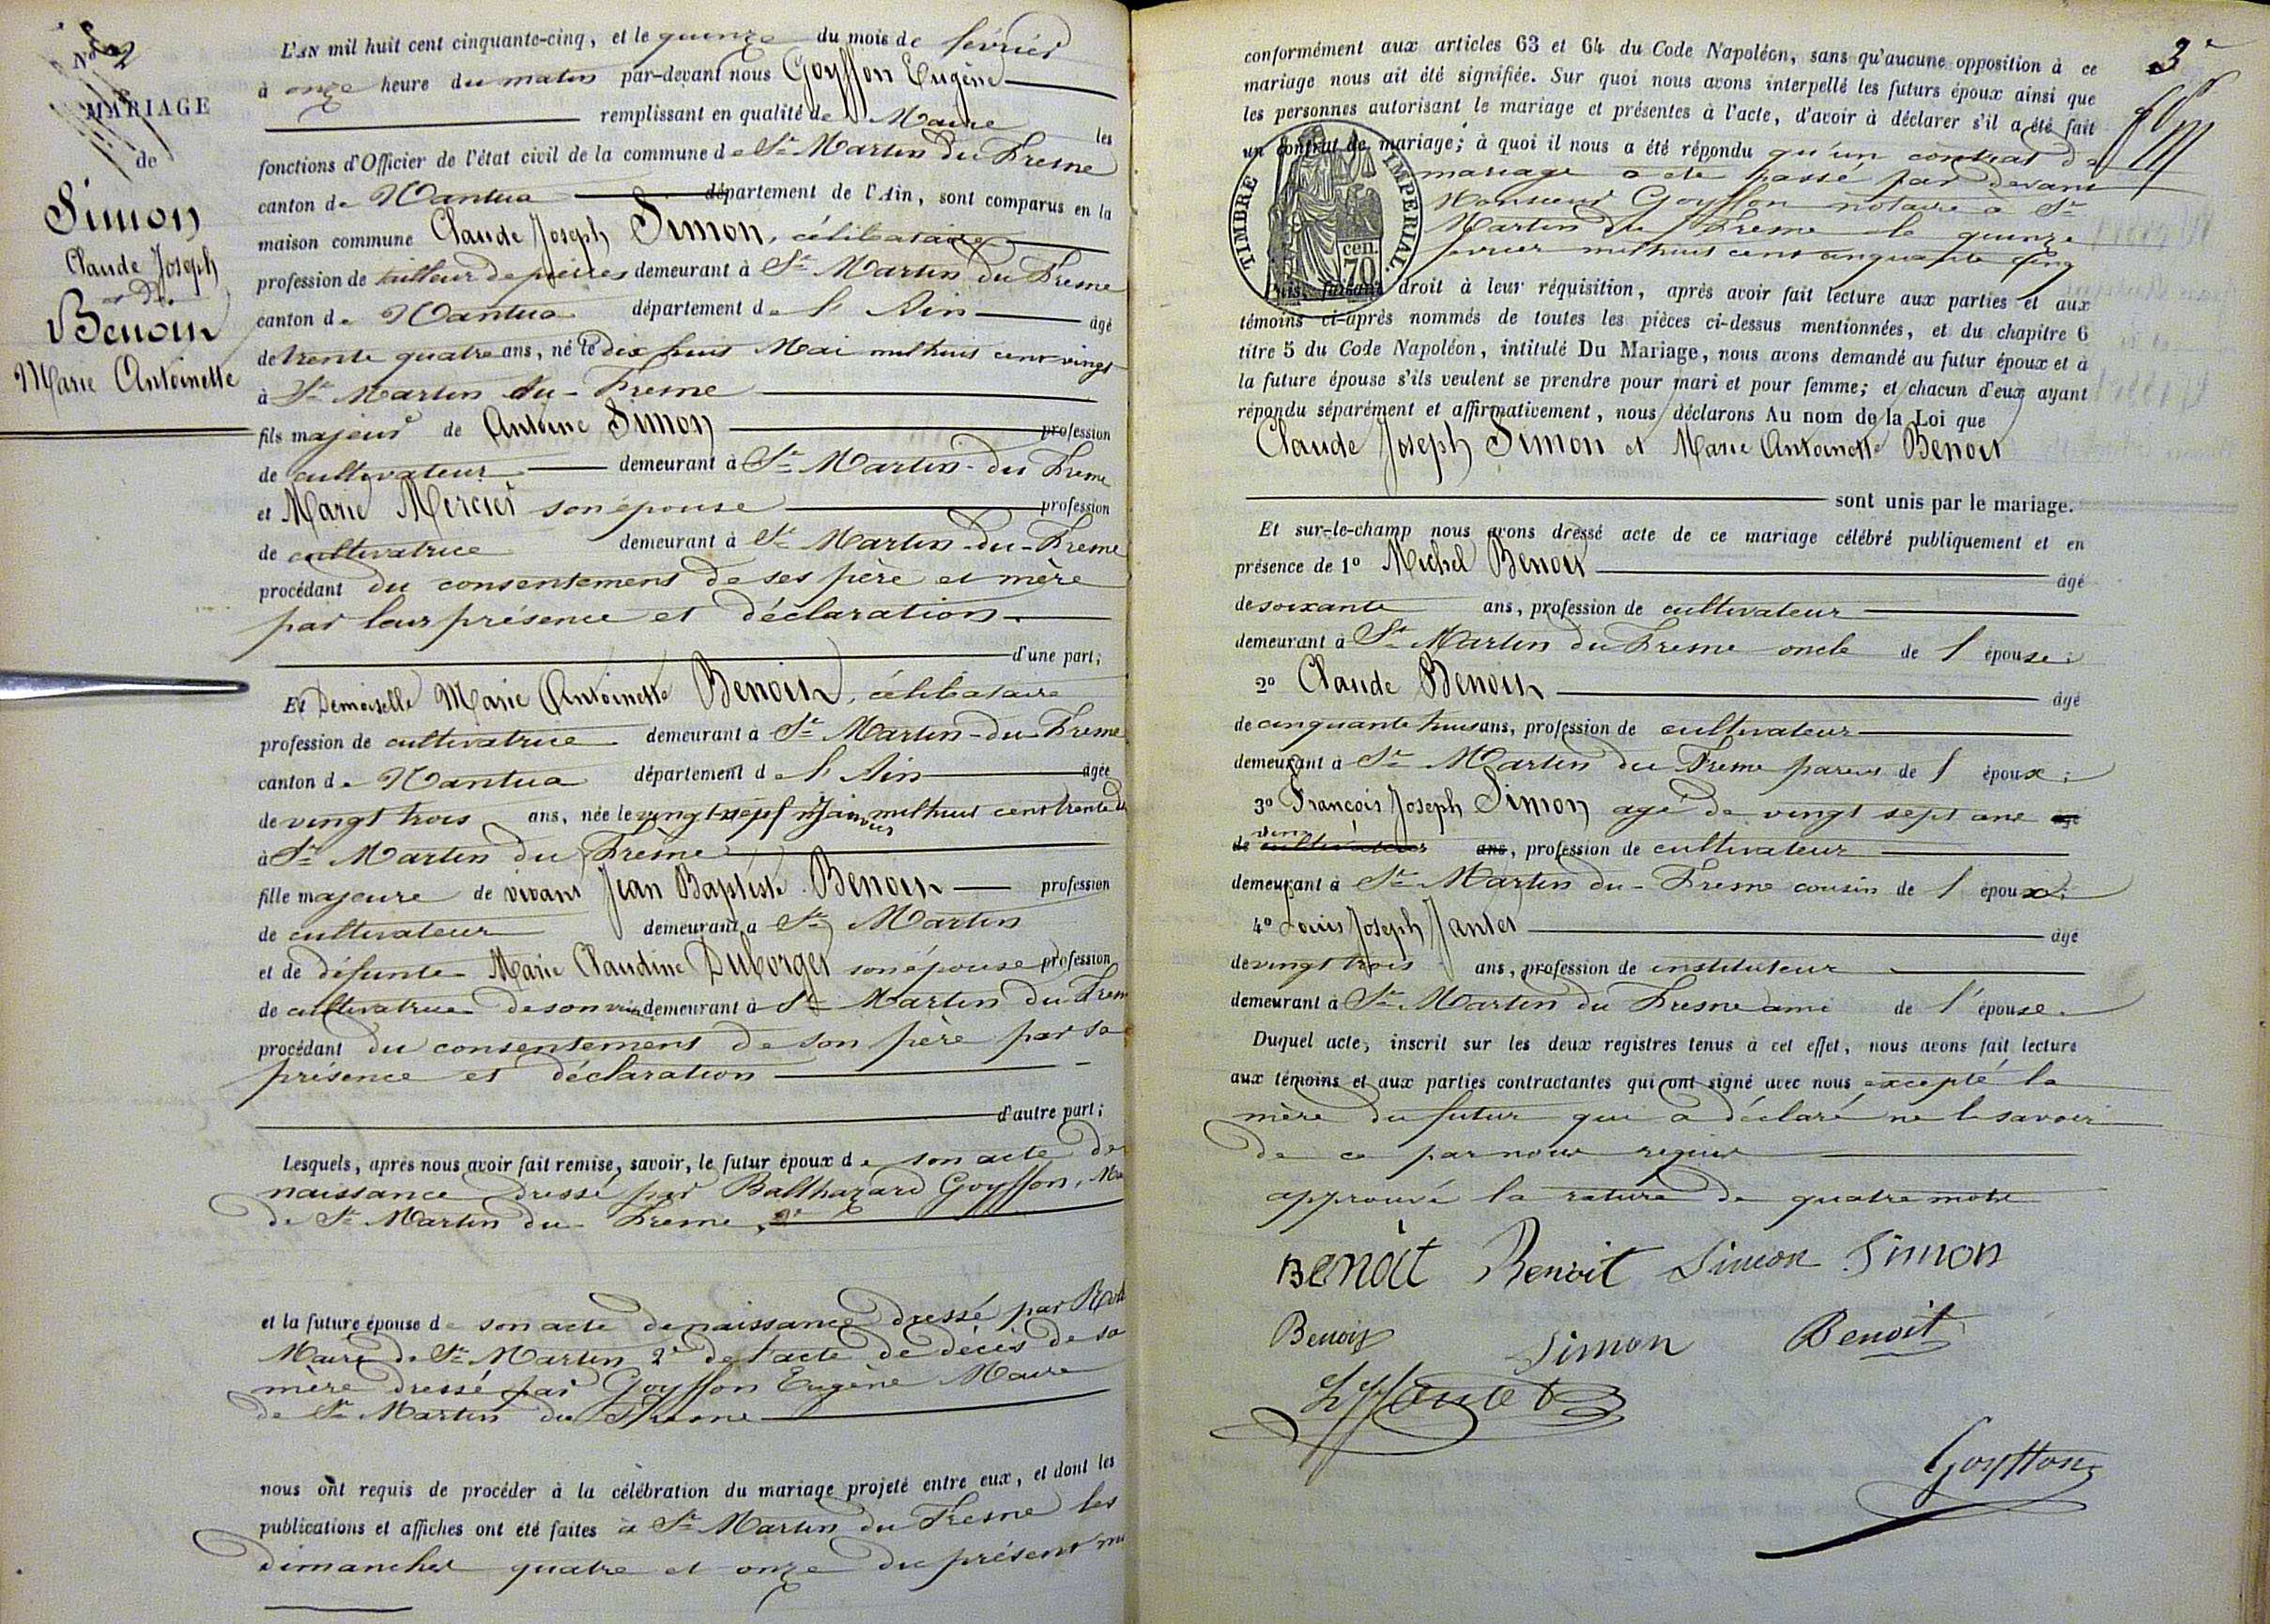 No 2
MARIAGE
de
Simon
Claude Joseph
et de
Benoit
Marie Antoinette
L'AN mil huit cent cinquante-cinq, et le quinze du mois de février
à onze heure du matin par-devant nous Goyffon Eugène
remplissant en qualité de Maire les
fonctions d'Officier de l'état civil de la commune de St Martin du Fresne
canton de Nantua département de l'Ain, sont comparus en la
maison commune Claude Joseph Simon, célibataire
profession de tailleur de pierres demeurant à St Martin du Fresne
canton de Nantua département de l'Ain âgé
de trente quatre ans, né le dix huit Mai mil huit cent vingt
à St Martin du-Fresne
fils majeur de Antoine Simon profession
de cultivateur demeurant à St Martin-du Fresne
et Marie Mercier son épouse profession
de cultivatrice demeurant à St Martin-du-Fresne
procédant du consentement de ses père et mère
par leur présence et déclaration.
d'une part;
Et Demoiselle Marie Antoinette Benoit, célibataire
profession de cultivatrice demeurant à St Martin-du-Fresne
canton de Nantua département de l'Ain âgée
de vingt trois ans, née le vingt-sept Janvier mil huit cent trente d
à St Martin du Fresne
fille majeure de vivant Jean Baptiste Benoit profession
de cultivateur demeurant à St Martin
et de défunte Marie Claudine Duborget son épouse profession
de cultivatrice de son vivant demeurant à St Martin du Fresn
procédant du consentement de son père par sa
présence et déclaration
d'autre part;
Lesquels, après nous avoir fait remise, savoir, le futur époux de son acte de
naissance dressé par Balthazard Goyffon, Mai
de St Martin du Fresne,
et la future épouse de son acte de naissance dressé par
Maire de St Martin 2° de l'acte de décès de sa
mère dressé par Goyffon Eugène Maire
de St Martin du Fresne
nous ont requis de procéder à la célébration du mariage projeté entre eux, et dont les
publications et affiches ont été faites à St Martin du Fresne les
dimanches quatre et onze du présent m
3e
conformément aux articles 63 et 64 du Code Napoléon, sans qu'aucune opposition à ce
mariage nous ait été signifiée. Sur quoi nous avons interpellé les futurs époux ainsi que
les personnes autorisant le mariage et présentes à l'acte, d'avoir à déclarer s'il a été fait
un contrat de mariage; à quoi il nous a été répondu qu'un contrat de
mariage a été passé par devant
Monsieur Goyffon notaire à St
Martin du Fresne le quinze
fevrier mil huit cent cinquante cinq
TIMBRE IMPERIAL.
70 cen.
Puis, faisant droit à leur réquisition, après avoir fait lecture aux parties et aux
témoins ci-après nommés de toutes les pièces ci-dessus mentionnées, et du chapitre 6
titre 5 du Code Napoléon, intitulé Du Mariage, nous avons demandé au futur époux et à
la future épouse s'ils veulent se prendre pour mari et pour femme; et chacun d'eux ayant
répondu séparément et affirmativement, nous déclarons Au nom de la Loi que
Claude Joseph Simon et Marie Antoinette Benoit
sont unis par le mariage.
Et sur-le-champ nous avons dressé acte de ce mariage célébré publiquement et en
présence de 1° Michel Benoit âgé
de soixante ans, profession de cultivateur
demeurant à St Martin du Fresne oncle de l'épouse;
2° Claude Benoit âgé
de cinquante huit ans, profession de cultivateur
demeurant à St Martin du Fresne parent de l'époux;
3° François Joseph Simon agé de vingt sept ans âgé
de cultivateur ans, profession de cultivateur
demeurant à St Martin du-Fresne cousin de l'époux;
4° Louis Joseph Jantet âgé
de vingt trois ans, profession de instituteur
demeurant à St Martin du Fresne ami de l'épouse.
Duquel acte, inscrit sur les deux registres tenus à cet effet, nous avons fait lecture
aux témoins et aux parties contractantes qui ont signé avec nous excepté la
mère du futur qui a déclaré ne le savoir
de ce par nous requise
approuvé la rature de quatre mots
Benoit Benoit Simon Simon
Benoit Simon Benoit
LJJantet
Goyffon